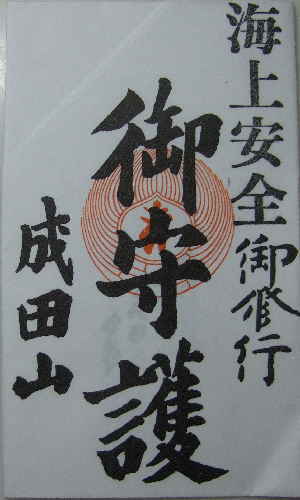 海上安全御修行
御守護
成田山